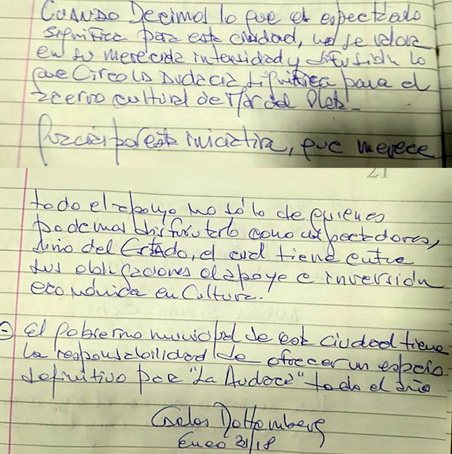 Cuando Decimos lo que el espectáculo
significa para esta ciudad, no se valora
en su merecida intensidad y difusión lo
que Circo La Audacia significa para el
acervo cultural de Mar del Plata.-
Gracias por esta iniciativa, que merece
21
todo el apoyo no sólo de quienes
podemos disfrutarlo como espectadores,
sino del Estado, el cual tiene entre
sus obligaciones el apoyo e inversión
económica en Cultura.
El gobierno municipal de esta ciudad tiene
la responsabilidad de ofrecer un espacio
definitivo para "La Audacia" todo el año
Carlos Rottemberg
Enero 21/18